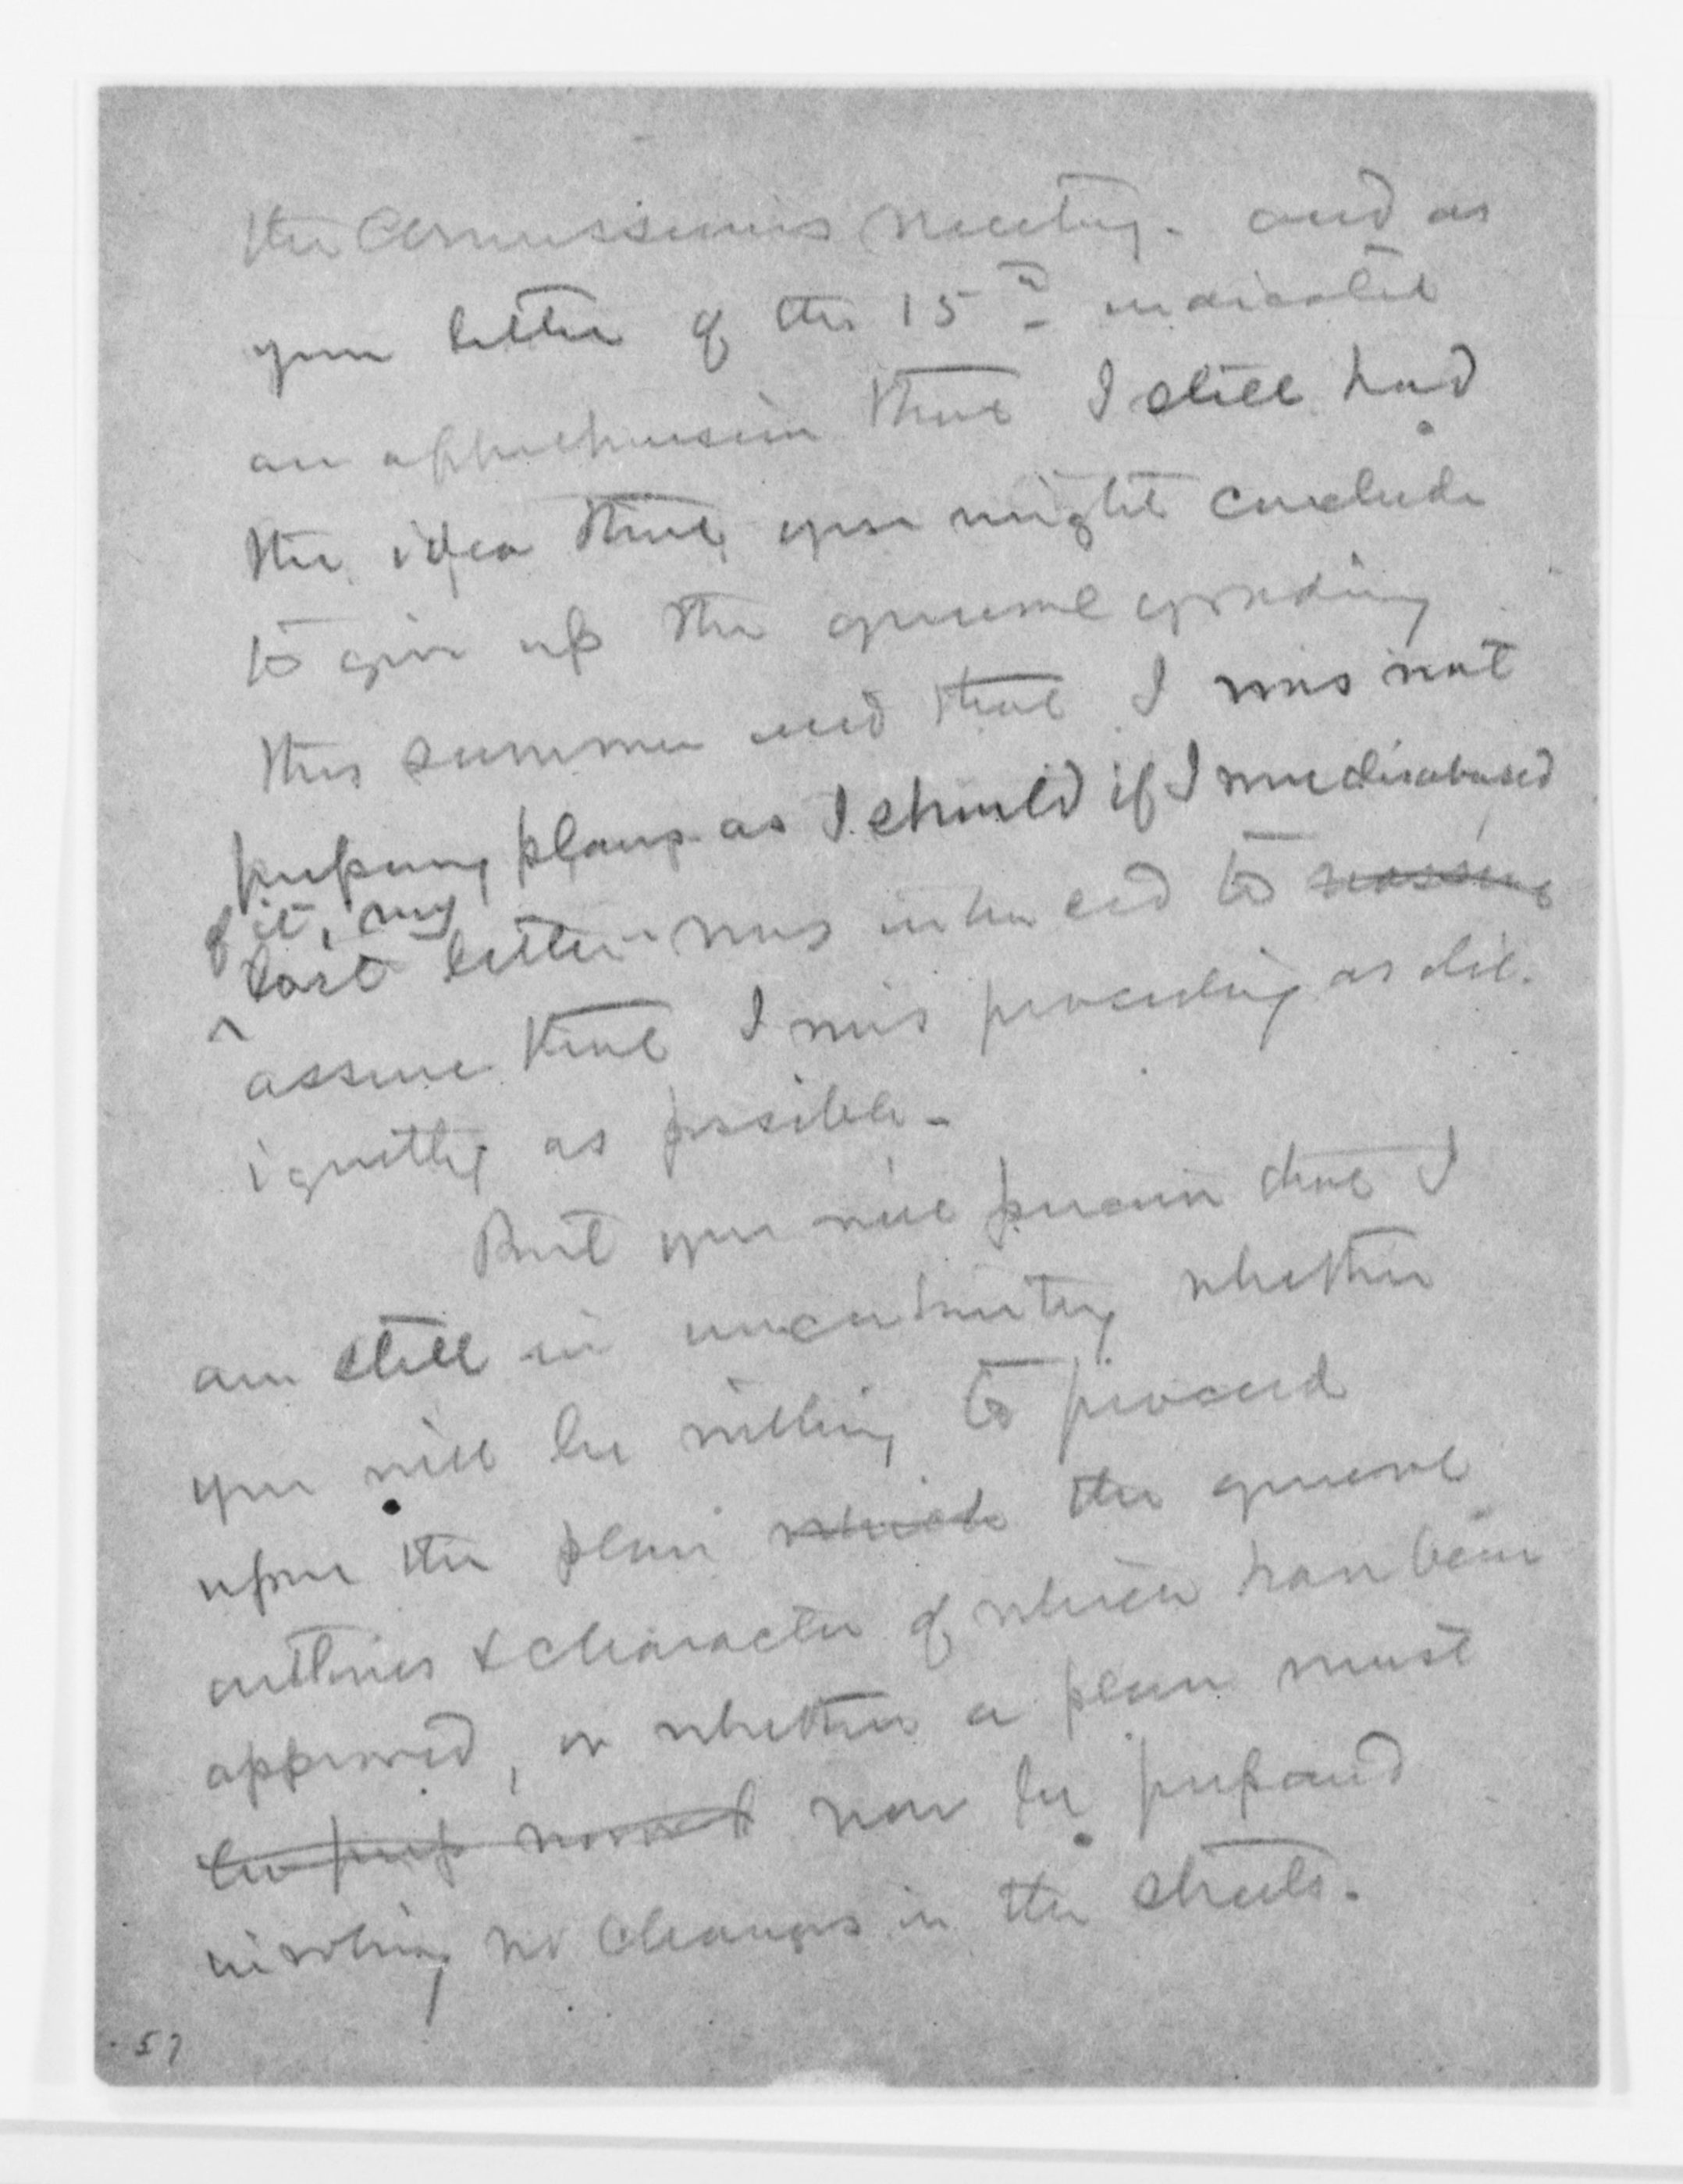 the Commissioners meeting. and as
your letter of the 15th indicated
an apprehension that I still had
the idea that you might conclude
to give up the general grading
this summer and that I was not
preparing plans as I should if I were disabused
of it, my
last letter was intended to reassure
assure that I was proceeding as dil-
igently as possible.
But you will perceive that I
am still in uncertainty whether
you will be willing to proceed
upon the plan which the general
outlines & character of which have been
approved, or whether a plan must
be prep now be prepared
involving no changes in the streets.
57